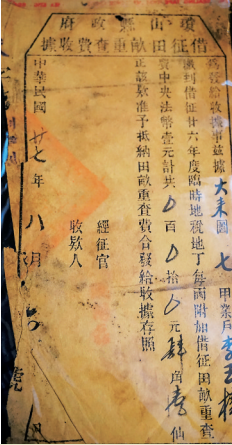 瓊山縣政府
借征田畝重查費收據
為發給收據事茲據大來圖七甲業戶李玉
繳到借征廿六年度臨時地稅地丁每両附加借征田畝重查
費中央法幣壹元計共0百0拾0元肆角壹仙
正該欵准予抵納田畝重查費合發給收據存照
經征官
收欵人
中華民國廿七年八月